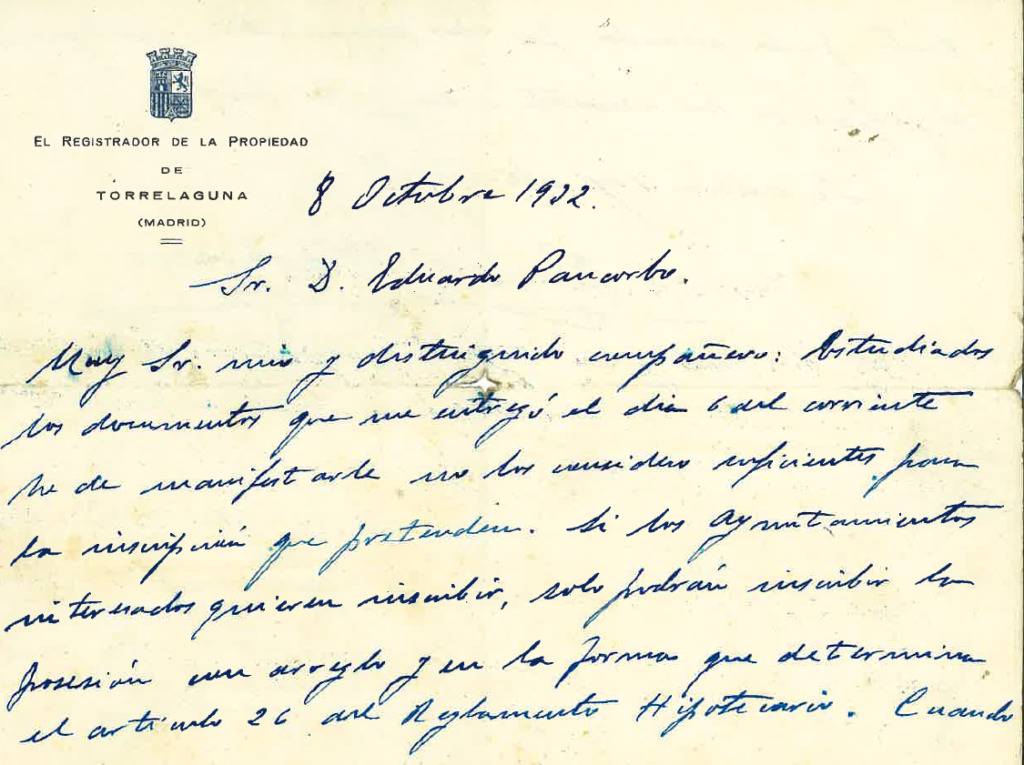 EL REGISTRADOR DE LA PROPIEDAD
DE
TORRELAGUNA
(MADRID)
8 Octubre 1932.
Sr. D. Eduardo Pancorbo.
Muy Sr. mio y distinguido compañero: Estudiados
los documentos que me entregó el dia 6 del corriente
he de manifestarle no los considero suficientes para
la inscripción que pretenden. Si los Ayuntamientos
interesados quieren inscribir, solo podrán inscribir la
posesión con arreglo y en la forma que determina
el artículo 26 del Reglamento Hipotecario. Cuando